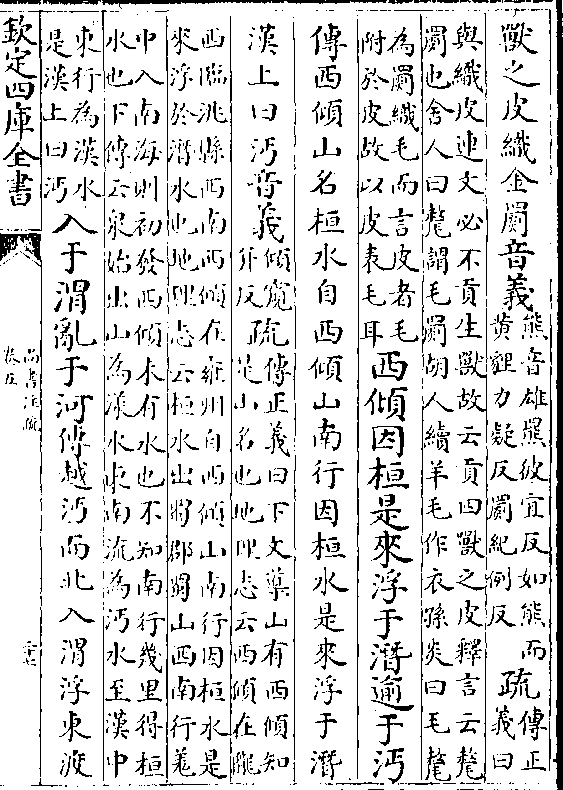 獸之皮織金罽音義
熊音雄羆彼宜反如熊而
黄貍力疑反罽紀例反
疏
傳正
義曰
與織皮連文必不貢生獸故云貢四獸之皮釋言云氂
罽也舍人曰氂謂毛罽胡人續羊毛作衣孫炎曰毛氂
為罽織毛而言皮者毛
附於皮故以皮表毛耳
西傾因桓是來浮于潛逾于沔
傳西傾山名桓水自西傾山南行因桓水是來浮于潛
漢上曰沔音義
傾窺
井反
疏
傳正義曰下文導山有西傾知
是山名也地理志云西傾在隴
西臨洮縣西南西傾在雍州自西傾山南行因桓水是
來浮於潛水也地理志云桓水出將郡蜀山西南行羌
中入南海則初發西傾未有水也不知南行幾里得桓
水也下傳云泉始出山為漾水東南流為沔水至漢中
東行為漢水
是漢上曰沔
入于渭亂于河傳越沔而北入渭浮東渡
欽定四庫全書
尚書注疏
卷五